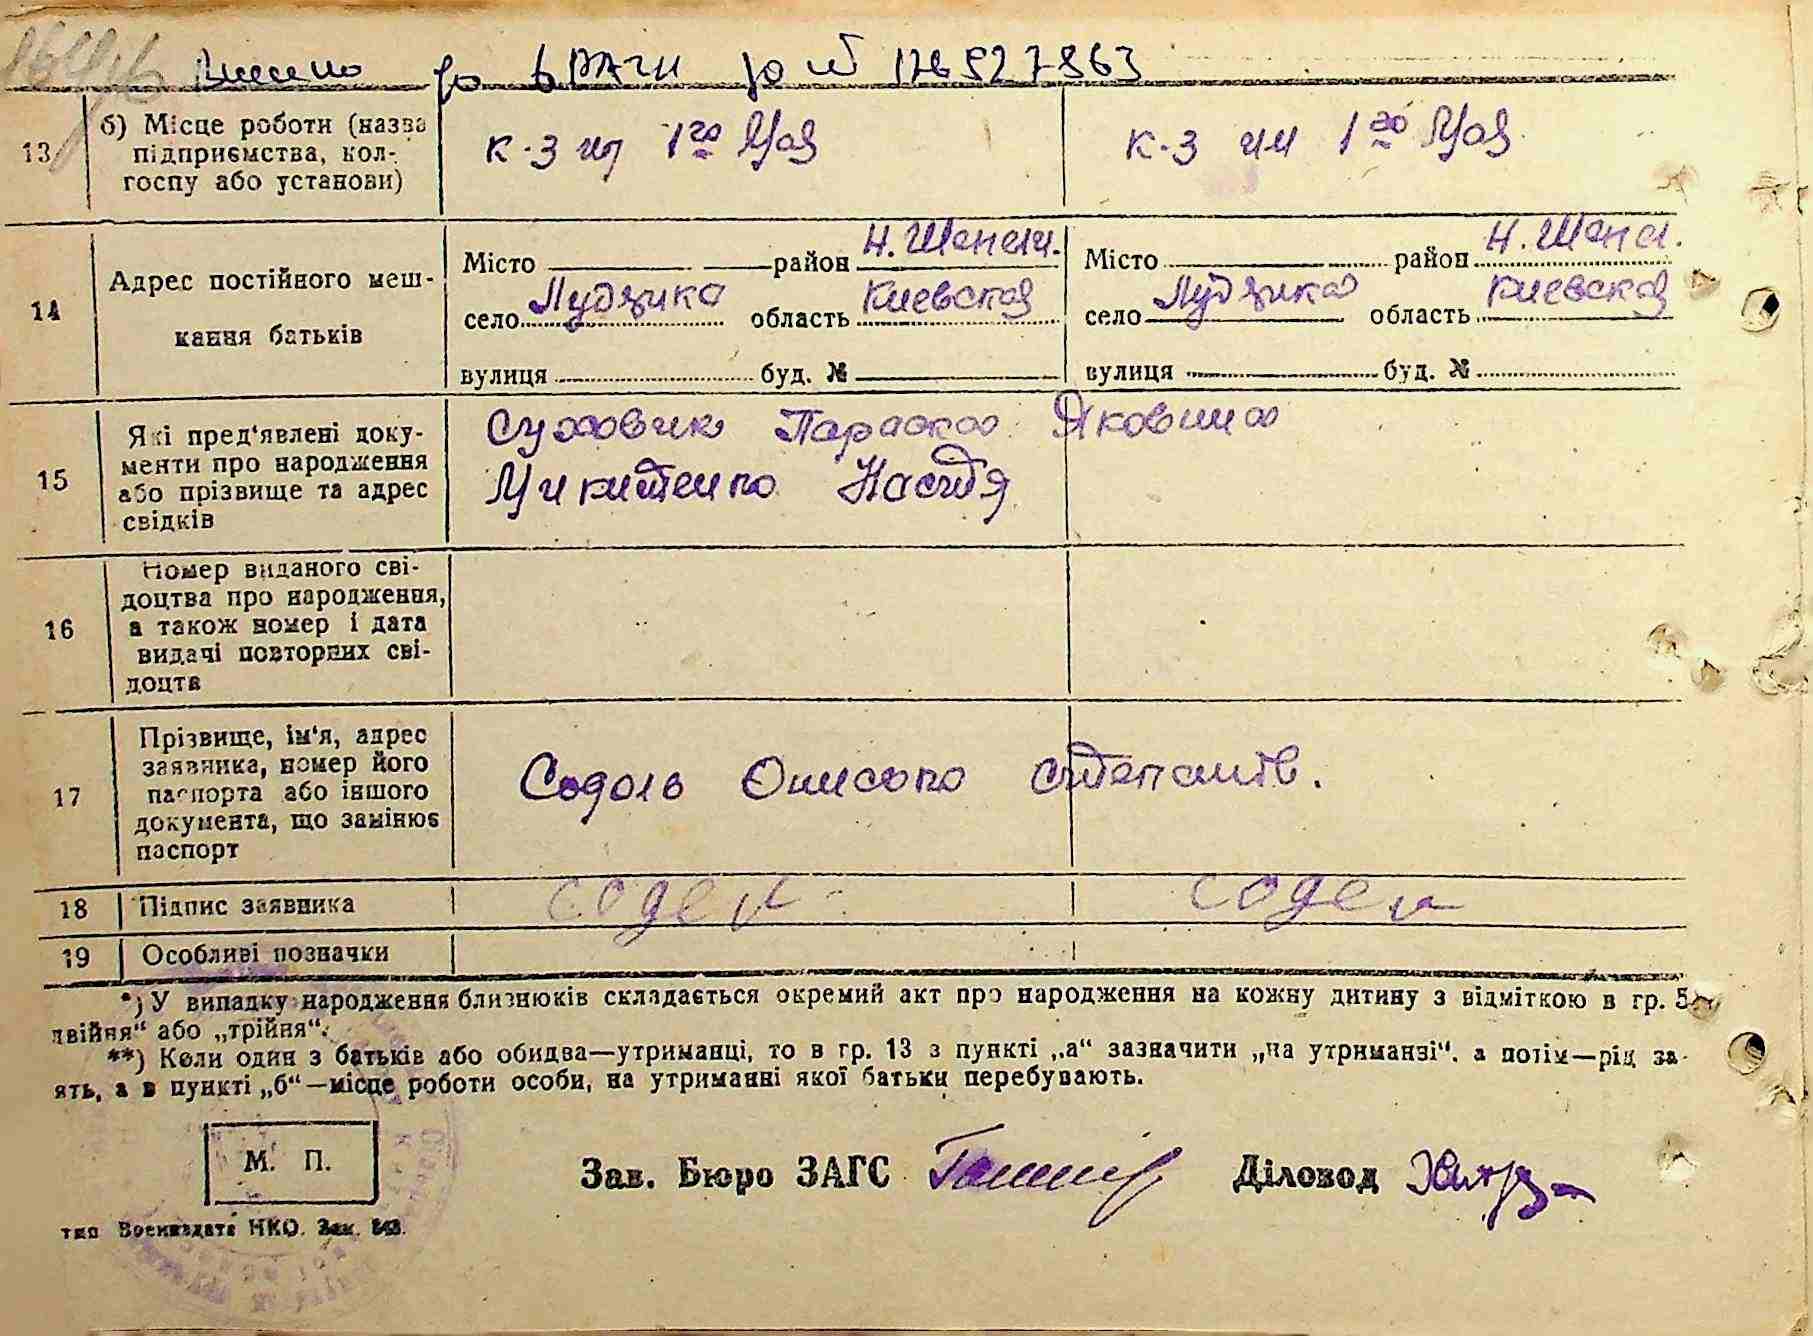 Внесено до ДРАЦГ за № 176927963
13
б) Місце роботи (назва підприємства, колгоспу або установи)
к-з им 1го Мая
к-з им 1го Мая
14
Адрес постійного мешкання батьків
Місто район Н. Шепел.
село Лудзика область Киевская
вулиця буд. №
Місто район Н. Шепел.
село Лудзика область Киевская
вулиця буд. №
15
Які пред'явлені документи про народження або прізвище та адрес свідків
Суховик Параска Яковина
Микитенко Настя
16
Номер виданого свідоцтва про народження, а також номер і дата видачі повторних свідоцтв
17
Прізвище, ім'я, адрес заявника, номер його паспорта або іншого документа, що замінює паспорт
Содоль Онисько Степанов.
18
Підпис заявника
содел
содел
19
Особливі позначки
*) У випадку народження близнюків складається окремий акт про народження на кожну дитину з відміткою в гр. 5
двійня" або „трійня".
**) Коли один з батьків або обидва—утриманці, то в гр. 13 з пункті „а" зазначити „на утриманні", а потім—рід за-
ять, а в пункті „б"—місце роботи особи, на утриманні якої батьки перебувають.
М. П.
Зав. Бюро ЗАГС
Діловод
тип Воениздата НКО. Зак. 843.